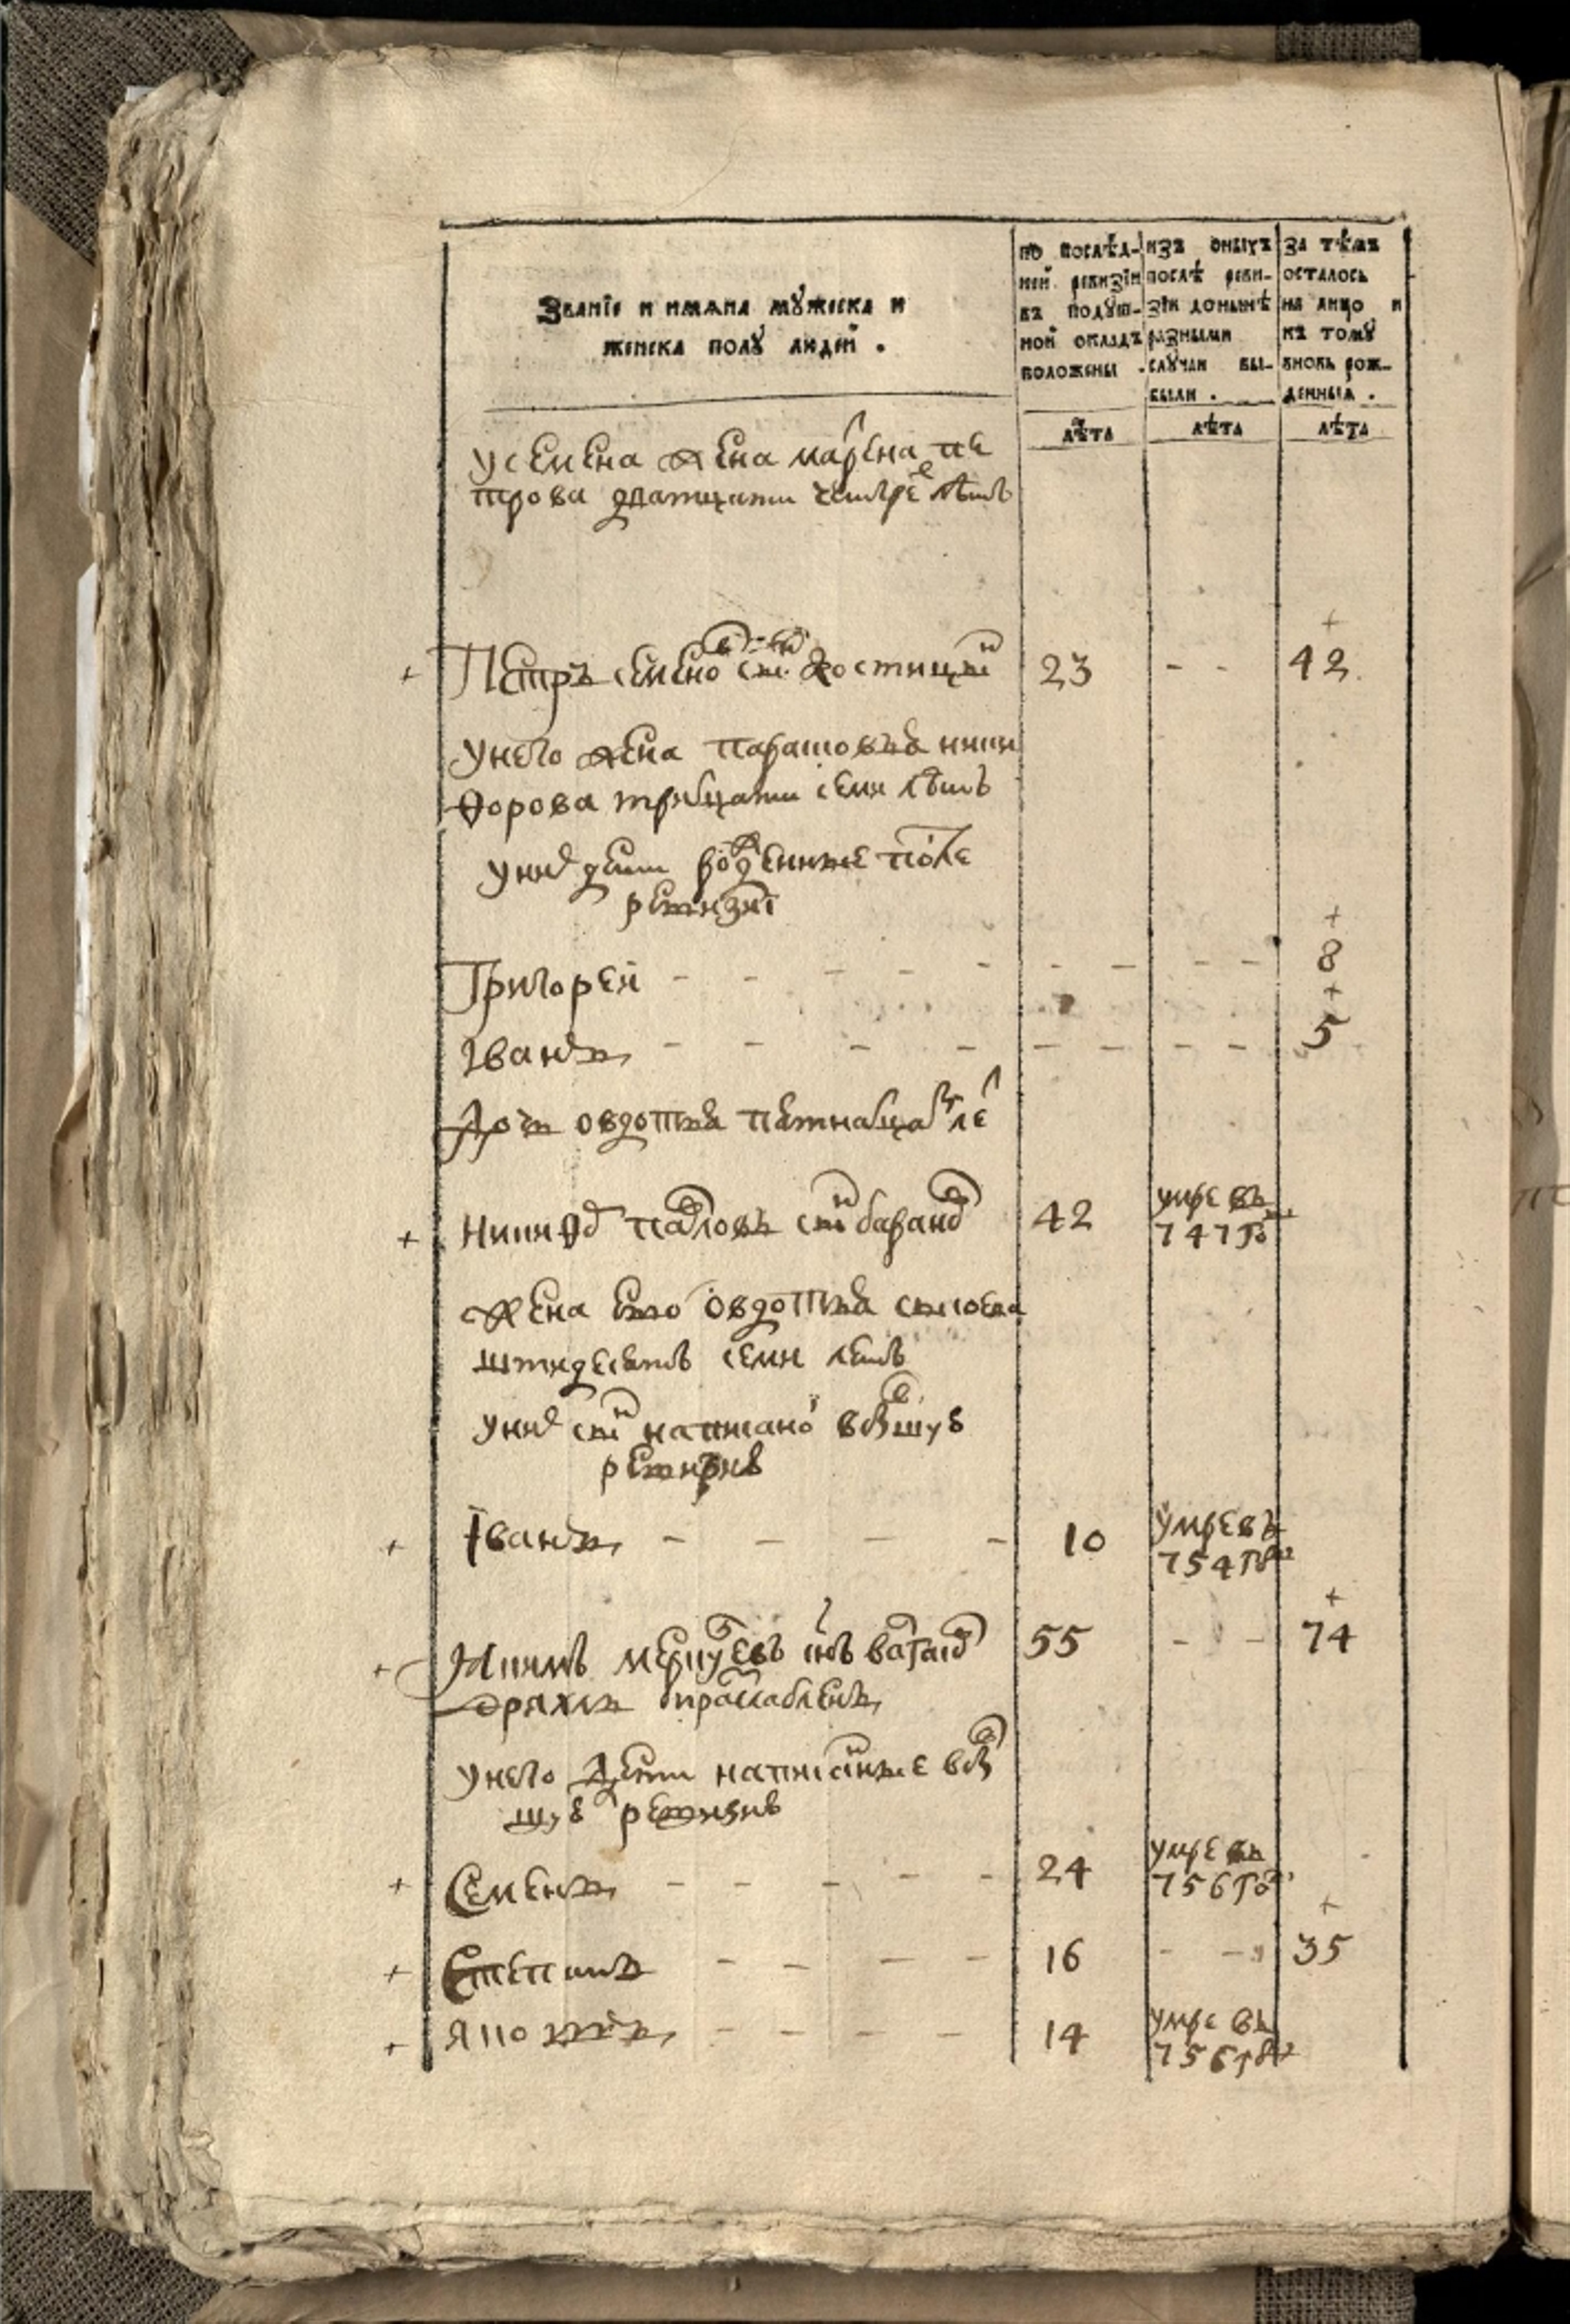 Званїе и имяна мꙋжеска и
женска полꙋ людей .
по послѣд-
ней ревизїи
въ подꙋш-
ной окладъ
положены .
изъ оныхъ
послѣ реви-
зїи донынѣ
разными
слꙋчаи вы-
были .
за тѣмъ
осталось
на лицо и
къ томꙋ
вновь рож-
денныя .
лѣта
лѣта
лѣта
у семена жена марена пе
трова дватцати четыре лѣтъ
+
+ Петръ семено сынъ 23 - - 42
у него жена парасковья ники
ѳорова тритцати семи лѣтъ
у ни дети рожденные после
ревизиї
+
Григорей - - - - - - - - - 8
+
Іванъ - - - - - - - - 5
дочь овдотья пятнатца ле
+ никиѳо павловъ сынъ 42 умре въ
747 го
жена ево овдотья
штидесятъ семи летъ
у ни сынъ написано в бывшую
ревизию
+ Іванъ - - - - 10 умре въ
754 го
+
+ 55 - - 74
дряхлъ и раслабленъ
у него дети написанные в быв
шую ревизию
+ Семенъ - - - - - 24 умре въ
756 го
+
+ Степанъ - - - - 16 - - 35
+ яковъ - - - - 14 умре въ
756 го